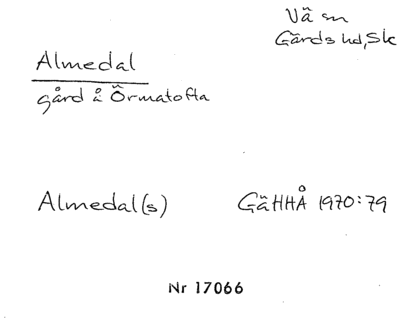 Vä sn
Gärds hd, Sk
Almedal
gård å Örmatofta
Almedal(s) GäHHÅ 1970:79
Nr 17066